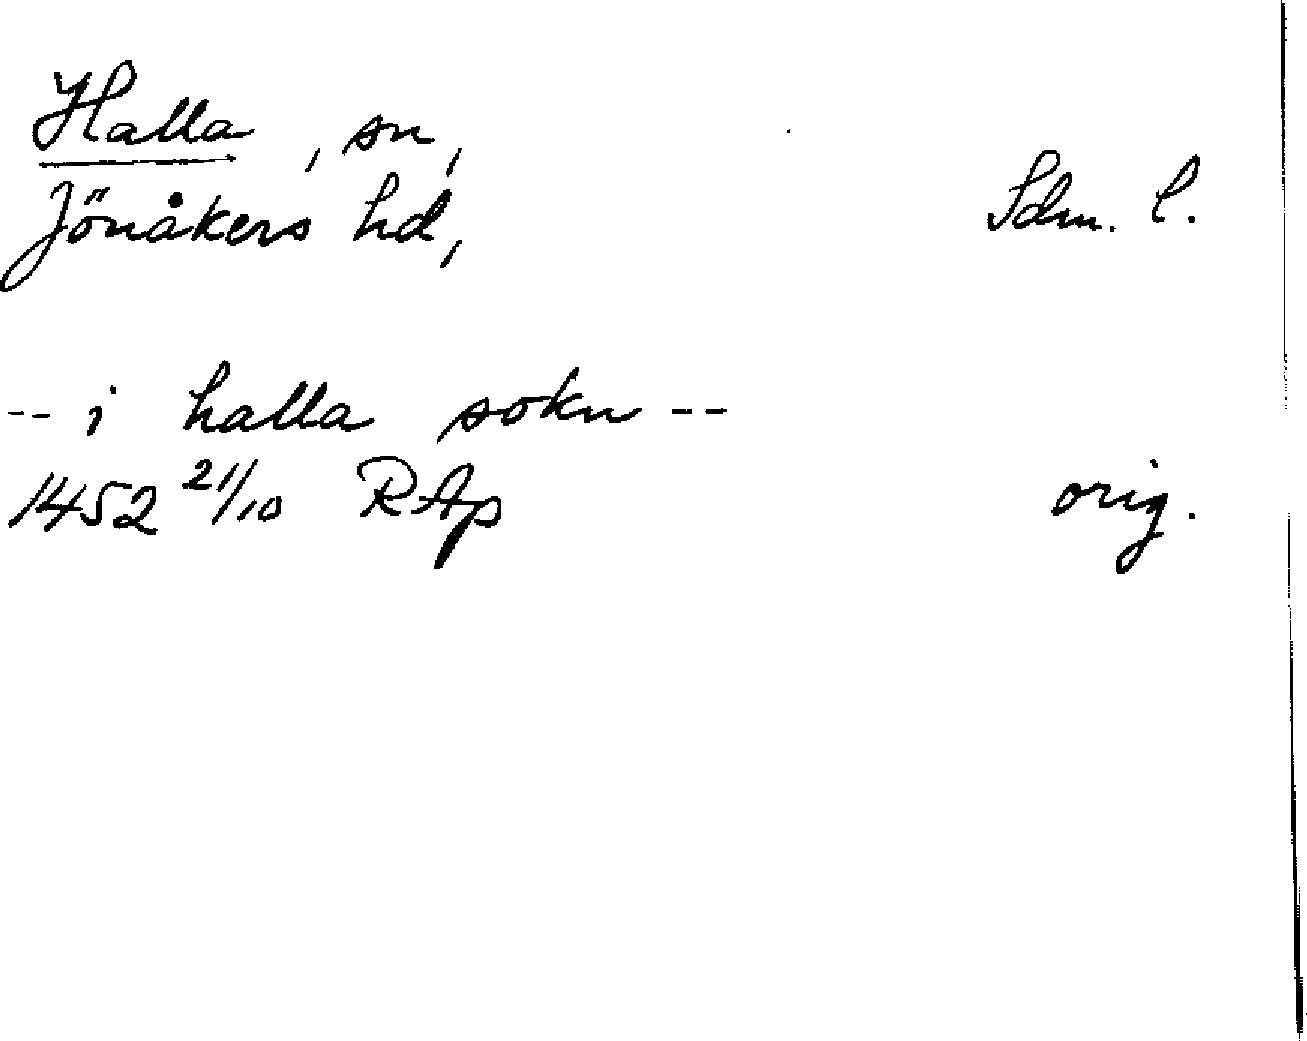 Halla, sn,
Jönåkers hd, Sdm. l.
-- i halla sokn --
1452 21/10 RAp orig.